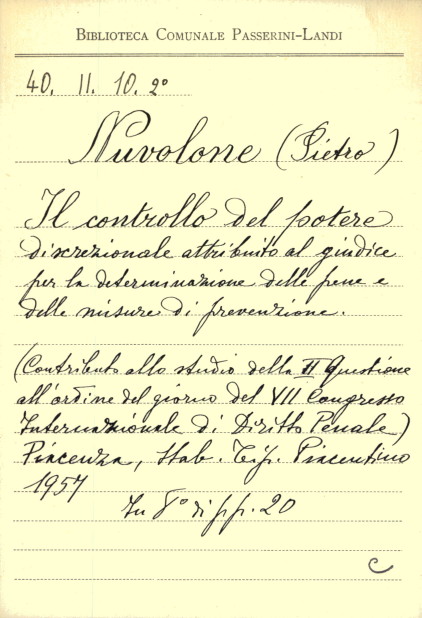 BIBLIOTECA COMUNALE PASSERINI-LANDI
40. II. 10. 2°
Nuvolone (Pietro)
Il controllo del potere
discrezionale attribuito al giudice
per la determinazione delle pene e
delle misure di prevenzione.
(Contributo allo studio della II Questione
all'ordine del giorno del VII Congresso
Internazionale di Diritto Penale)
Piacenza, Stab. Tip. Piacentino
1957
In 8° di pp. 20
C